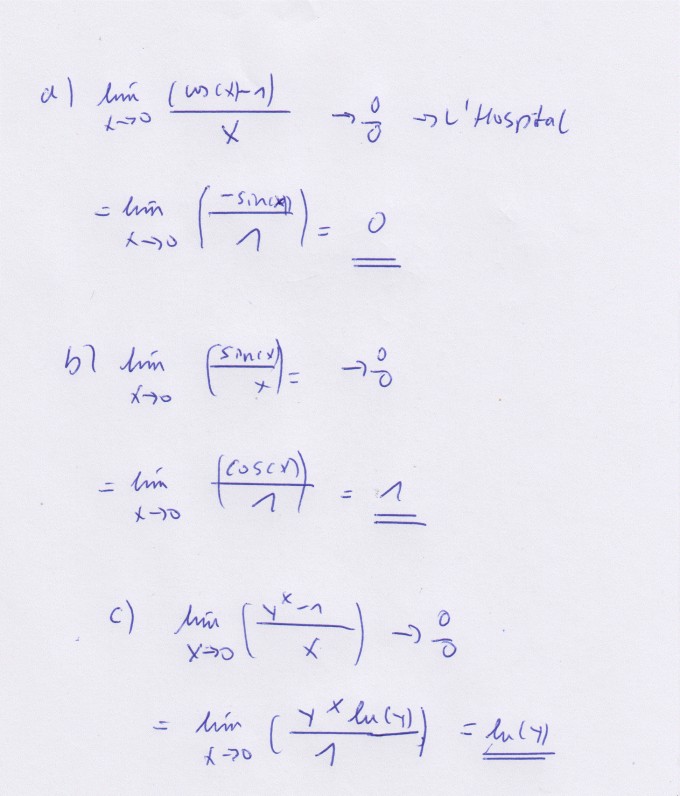 a) lim x→0 (cos(x)-1)/x → 0/0 → L'Hospital
= lim x→0 (-sin(x)/1) = 0
b) lim x→0 (sin(x)/x) = → 0/0
= lim x→0 (cos(x)/1) = 1
c) lim x→0 (y^x-1/x) → 0/0
= lim x→0 (y^x ln(y)/1) = ln(y)